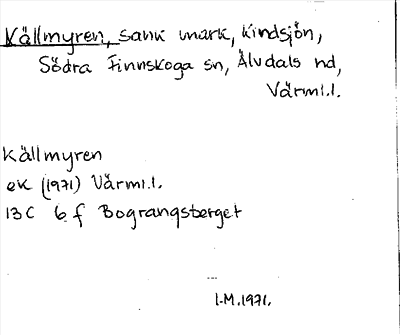 Källmyren, sank mark, Kindsjön,
Södra Finnskoga sn, Älvdals hd,
Värml.l.
Källmyren
ek (1971) Värml.l.
13C 6f Bograngsberget
I-M.1971.